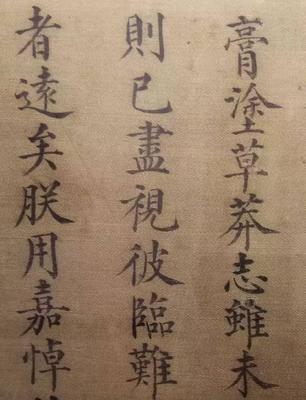 膏塗草莽志雖未
則已盡視彼臨難
者遠矣朕用嘉悼